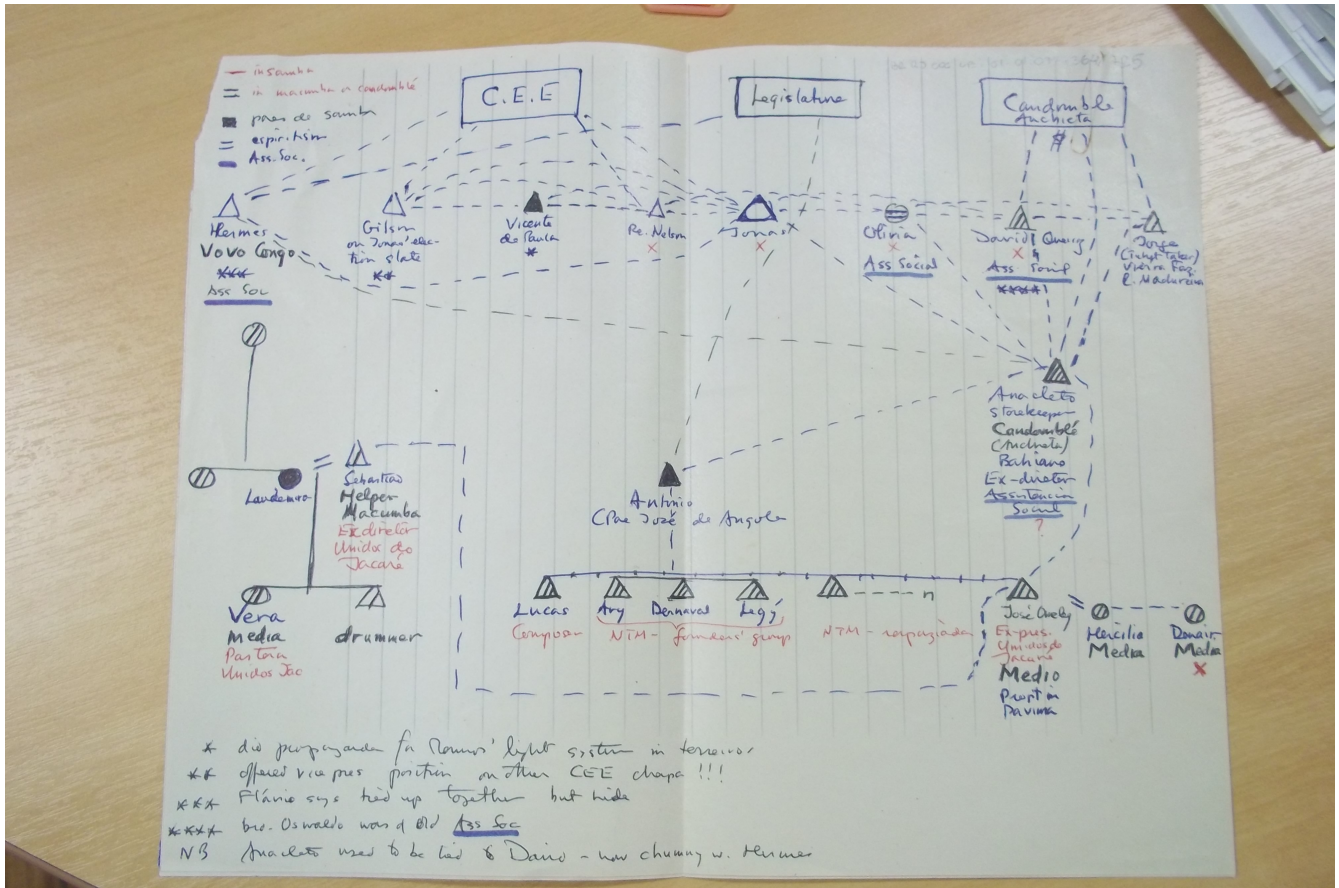 in samba
in macumba or candomblé
pais de samba
espiritism
Ass. Soc.
C.E.E
Legislature
Candomblé
Anchieta
Hermes
Vovo Congo
***
Ass Soc
Gilson
on Jonas' elec-
tion slate
**
Vicente
de Paula
*
Pe. Nelson
x
Jonas x
x
Olivia
x
Ass Social
David
x
Ass Social
****
Jorge
Vieira Faz.
E. Madureira
Anacleto
Storekeeper
Candomblé
(Anchieta)
Bahiano
Ex-diretor
Assistencia
Social
?
Laudemira
Sebastião
Helper
Macumba
Ex diretor
Unidos do
Jacaré
Antônio
(Pae José de Angola
Vera
Media
Pastora
Unidos Jac
drummer
Lucas
Composer
Ary
Dennaval
Legy
NTM - founders' group
n
NTM - rapaziada
José
Ex-pres.
Unidos do
Jacaré
Medio
Hercilia
Media
Donair
Media
x
* did propaganda for Ramos' light system in terreiros
** offered vice pres position on other CEE chapa !!!
*** Flávio says tied up together but hide
**** bro. Oswaldo was of old Ass Soc
NB Anacleto used to be tied to David - now chummy w. Hermes